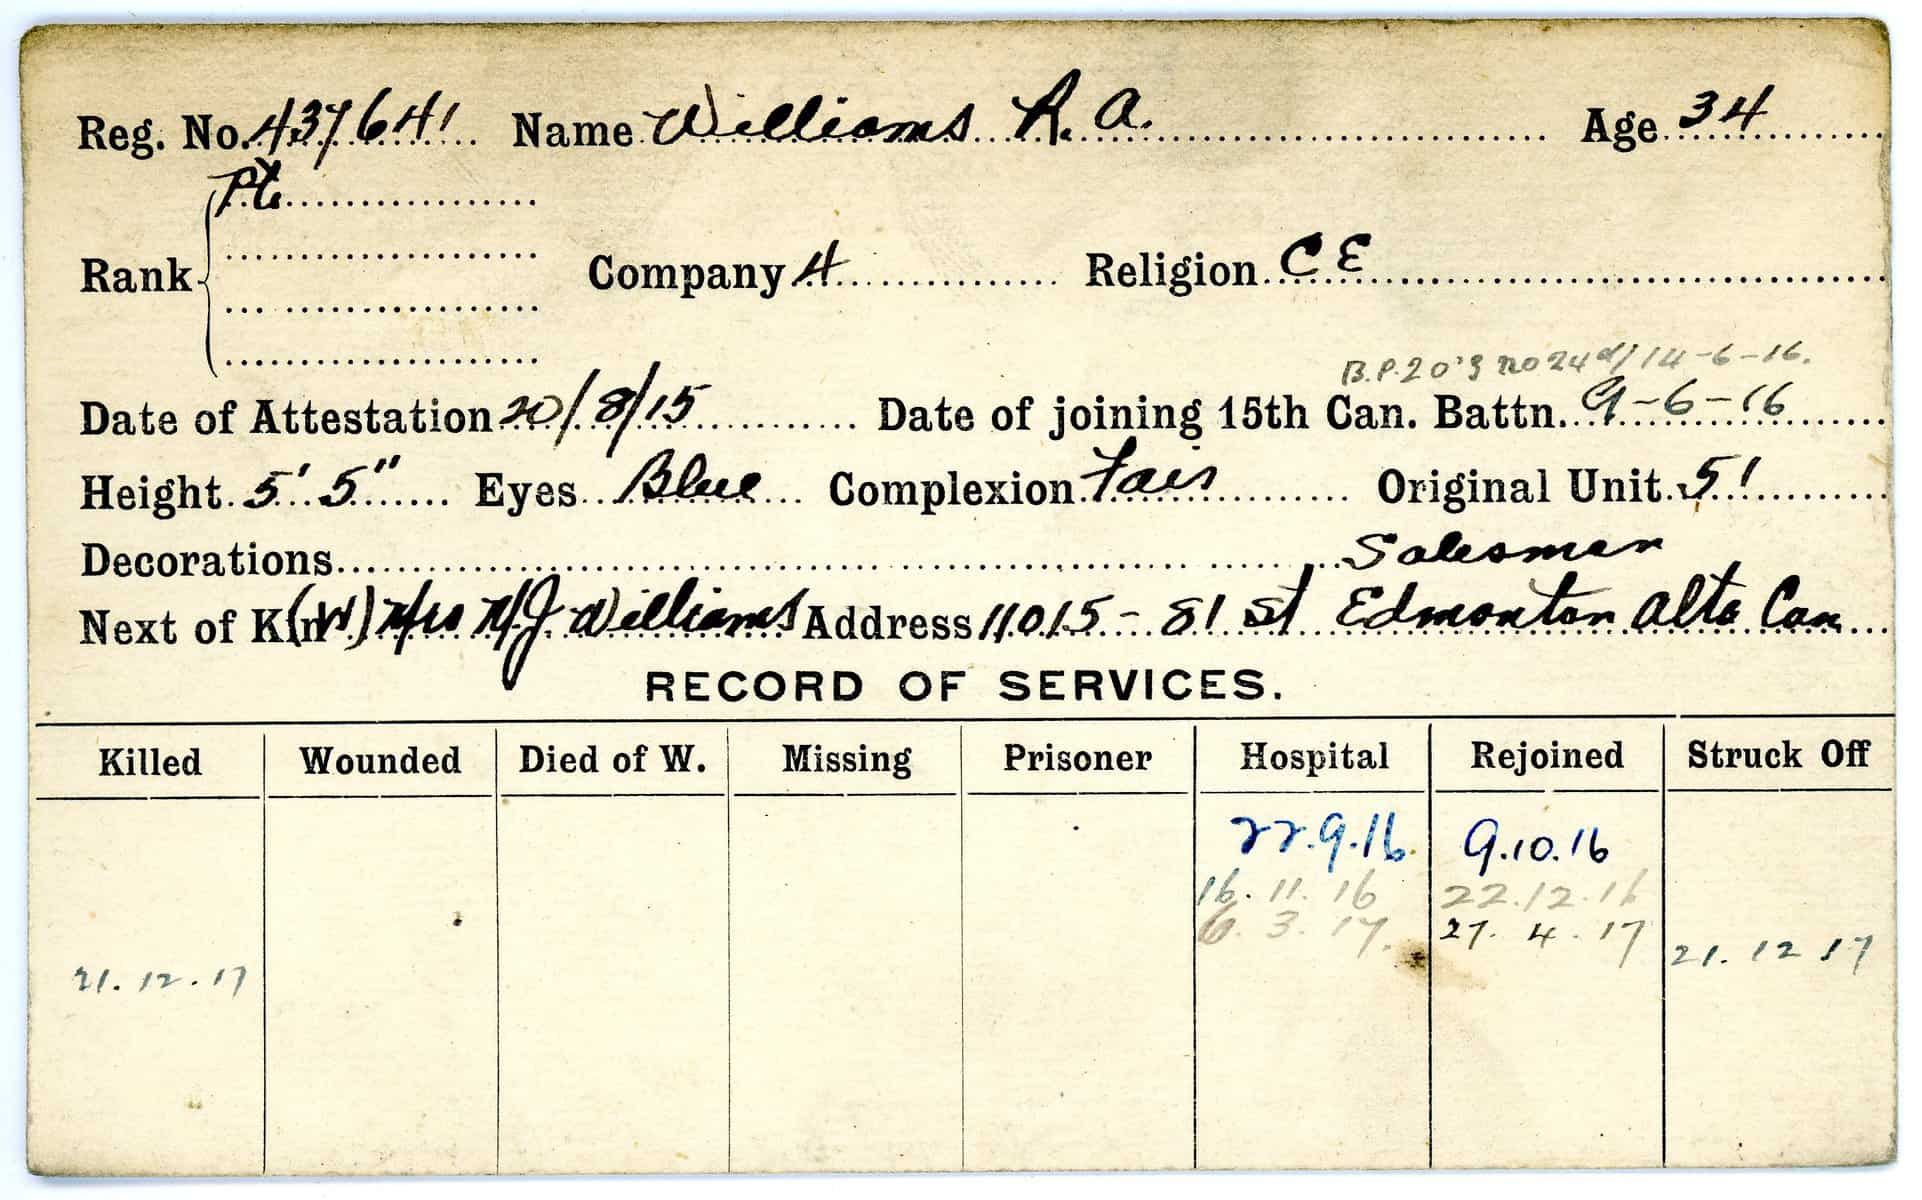 Reg. No. 437641 Name Williams R. A. Age 34
Pte
Rank Company 4 Religion C E
B.P.20's no 24 d/ 14-6-16.
Date of Attestation 20/8/15 Date of joining 15th Can. Battn. 9-6-16
Height 5' 5" Eyes Blue Complexion Fair Original Unit 51
Decorations Salesman
Next of Kin (W) Mrs M J Williams Address 11015 - 81 St Edmonton Alta Can
RECORD OF SERVICES.
Killed Wounded Died of W. Missing Prisoner Hospital Rejoined Struck Off
22.9.16 9.10.16
16.11.16 22.12.16
6.3.17. 27.4.17
21.12.17 21.12 17